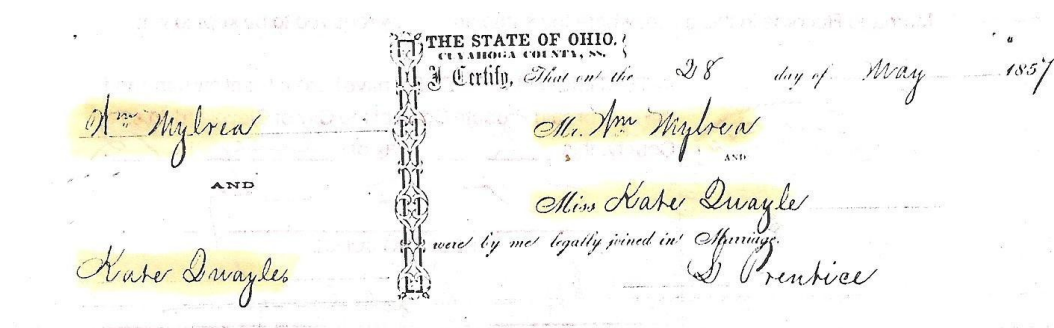 Wm Mylrea
AND
Kate Quayles
THE STATE OF OHIO.
CUYAHOGA COUNTY, SS.
I Certify, That on the 28 day of May 1857
Mr. Wm Mylrea
AND
Miss Kate Quayle
were by me legally joined in Marriage.
D Prentice